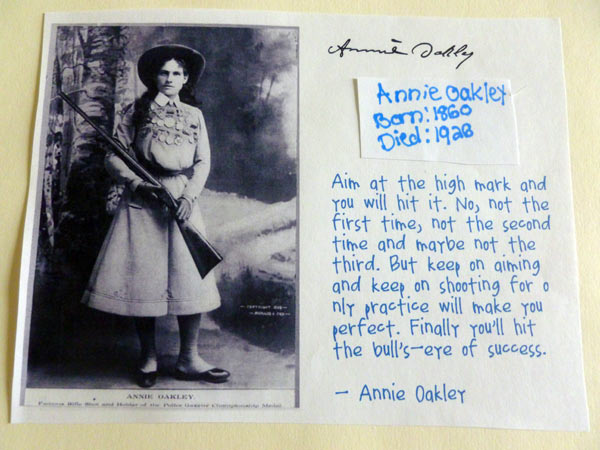 Annie Oakley
Annie Oakley
Born: 1860
Died: 1928
Aim at the high mark and
you will hit it. No, not the
first time, not the second
time and maybe not the
third. But keep on aiming
and keep on shooting for o
nly practice will make you
perfect. Finally you'll hit
the bull's-eye of success.
- Annie Oakley
COPYRIGHT
ANNIE OAKLEY
Famous Rifle Shot and Holder of the Police Gazette Championship Medal.